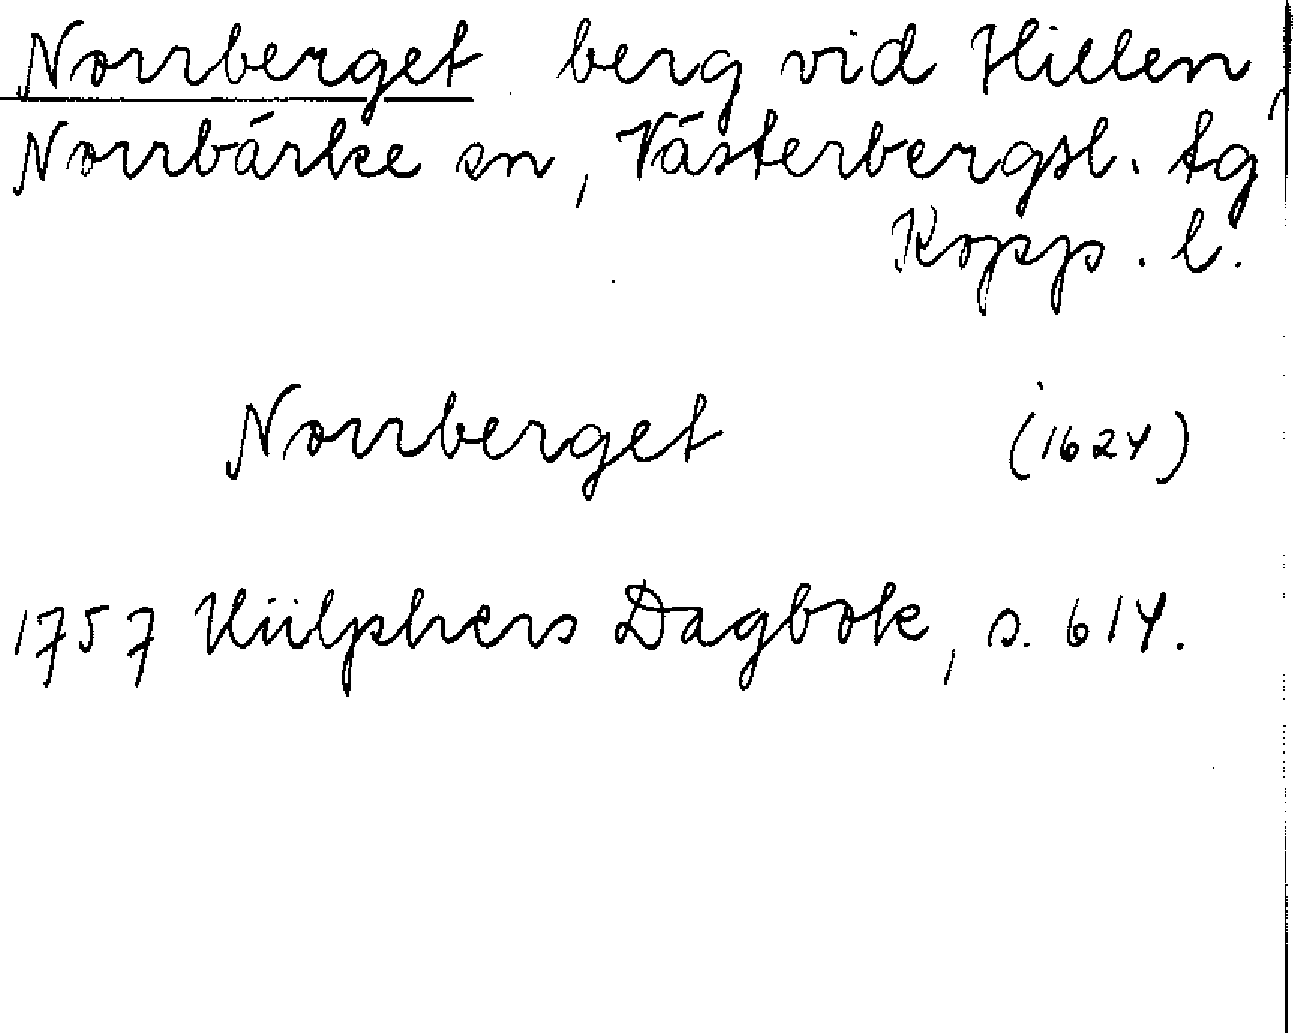 Norrberget berg vid Hillen,
Norrbärke sn, Västerbergsl. tg
Kopp. l.
Norrberget (1624)
1757 Hülphers Dagbok, s. 614.